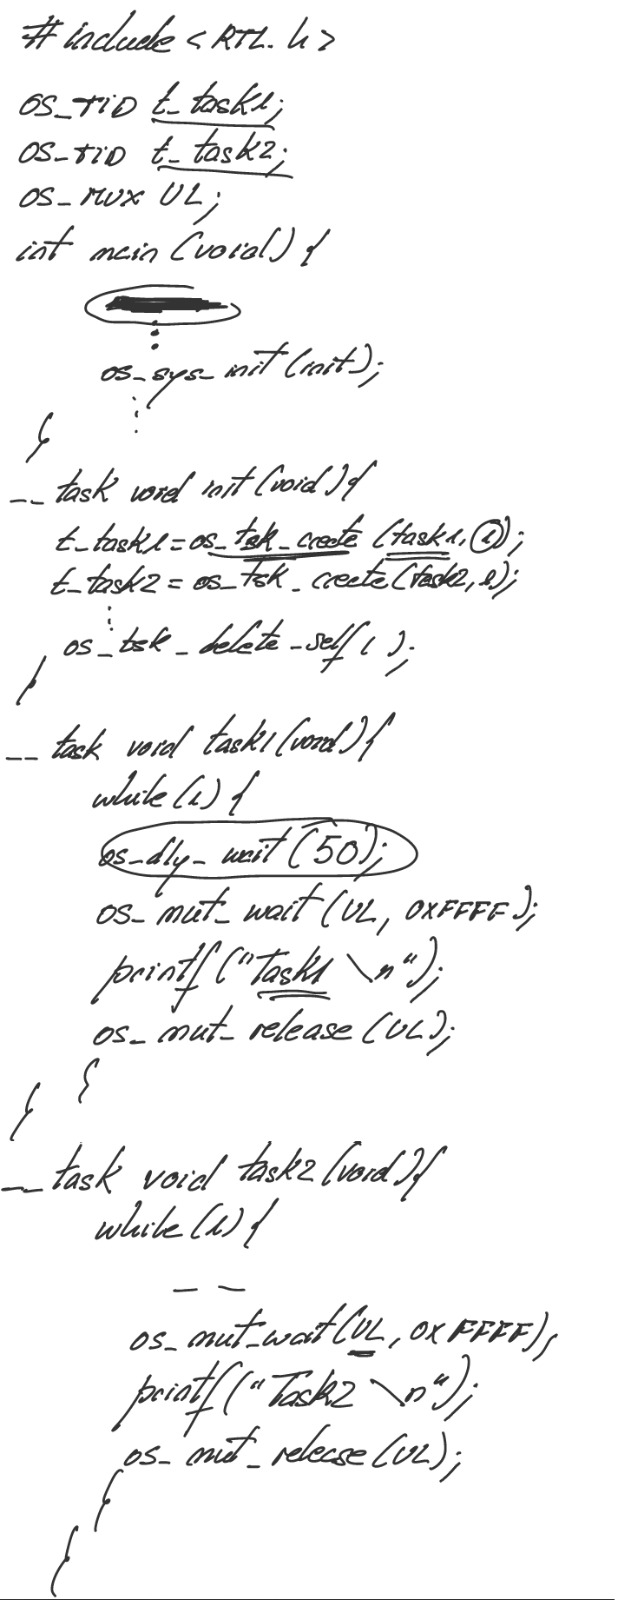 #include <RTL.h>
OS_TID t_task1;
OS_TID t_task2;
OS_MUX UL;
int main (void) {
os_sys_init (init);
}
__task void init (void) {
t_task1 = os_tsk_create (task1, 1);
t_task2 = os_tsk_create (task2, 1);
os_tsk_delete_self ( );
}
__task void task1 (void) {
while (1) {
os_dly_wait (50);
os_mut_wait (UL, 0xFFFF);
printf ("Task1 \n");
os_mut_release (UL);
}
}
__task void task2 (void) {
while (1) {
os_mut_wait (UL, 0xFFFF);
printf ("Task2 \n");
os_mut_release (UL);
}
}